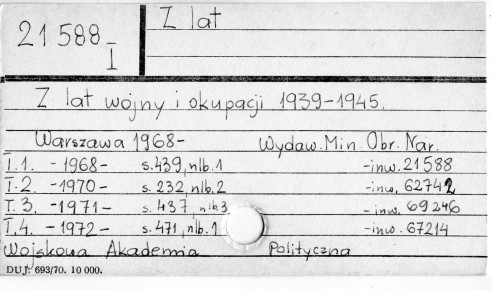 21 588 I
Z lat
Z lat wojny i okupacji 1939-1945.
Warszawa 1968- Wydaw. Min. Obr. Nar.
T.1. -1968- s.439, nlb.1 -inw. 21588
T.2 -1970- s. 232, nlb.2 -inw. 62742
T.3. -1971- s. 437, nlb.3 -inw. 69246
T.4. -1972- s. 471, nlb.1 -inw. 67214
Wojskowa Akademia Polityczna
DUJ. 693/70. 10 000.